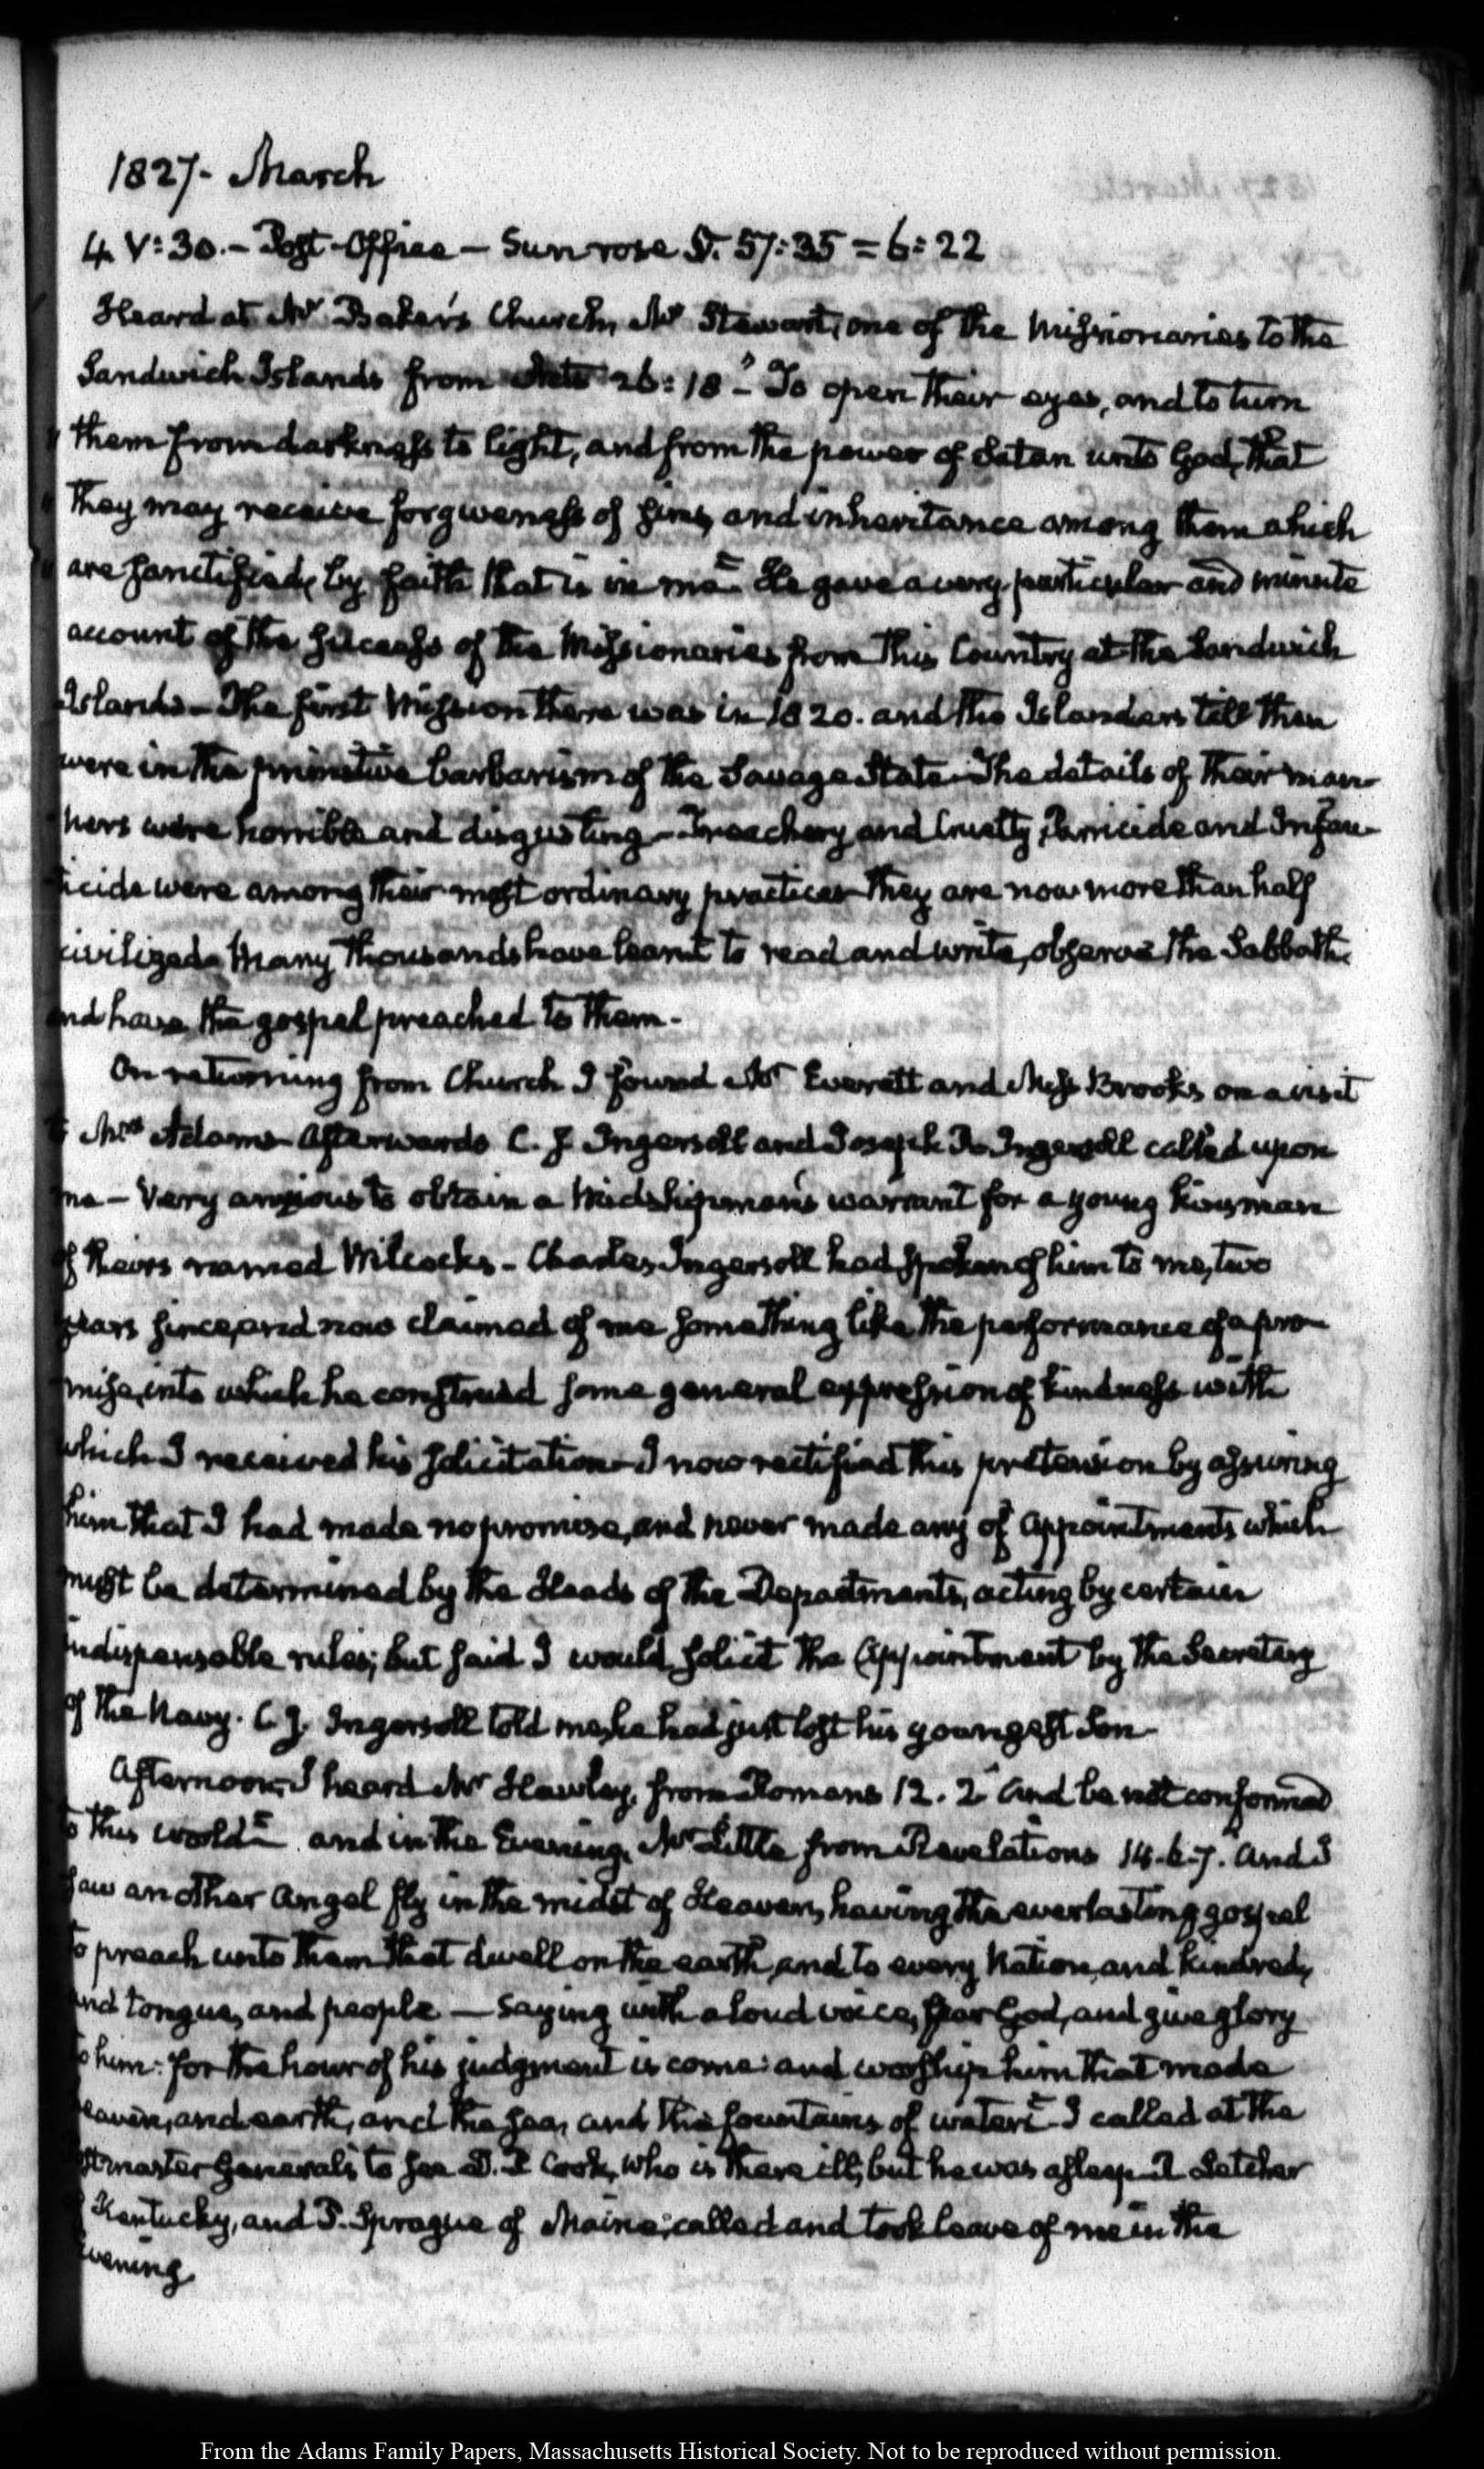 1827- March
4. V:30.- Post-Office - Sun rose S. 57:35 = 6:22
Heard at Mr Baker's Church, Mr Stewart, one of the Missionaries to the
Sandwich Islands from Acts 26:18 "- To open their eyes, and to turn
" them from darkness to light, and from the power of Satan unto God, that
" they may receive forgiveness of sins, and inheritance among them which
" are sanctified, by faith that is in me" He gave a very particular and minute
account of the success of the Missionaries from this Country at the Sandwich
Islands - The first Mission there was in 1820. and the Islanders till then
were in the primitive barbarism of the Savage State - The details of their man-
ners were horrible and disgusting - Treachery and Cruelty, Parricide and Infan-
ticide were among their most ordinary practices - They are now more than half
civilized - Many thousands have learnt to read and write, observe the Sabbath,
and have the gospel preached to them.-
On returning from Church I found Mr Everett and Miss Brooks on a visit
to Mrs Adams - Afterwards C. J. Ingersoll and Joseph R. Ingersoll called upon
me - Very anxious to obtain a Midshipman's warrant for a young kinsman
of theirs named Wilcocks - Charles Ingersoll had spoken of him to me, two
years since, and now claimed of me something like the performance of a pro-
mise, into which he construed some general expression of kindness with
which I received his solicitation - I now rectified this pretension by assuring
him that I had made no promise, and never made any of appointments which
must be determined by the Heads of the Departments, acting by certain
indispensable rules; but said I would solicit the appointment by the Secretary
of the Navy. C. J. Ingersoll told me, he had just lost his youngest Son-
Afternoon, I heard Mr Hawley, from Romans 12. 2 "And be not conformed
to this world" and in the Evening, Mr Little from Revelations 14.6.7. "And I
saw another Angel fly in the midst of Heaven, having the everlasting gospel
to preach unto them that dwell on the earth, and to every Nation, and kindred,
and tongue, and people - Saying with a loud voice, fear God, and give glory
to him: for the hour of his judgment is come: and worship him that made
heaven, and earth, and the sea, and the fountains of waters" - I called at the
Postmaster General's to see D. P. Cook, who is there ill; but he was asleep - R. Letcher
of Kentucky, and P. Sprague of Maine, called and took leave of me in the
evening.
From the Adams Family Papers, Massachusetts Historical Society. Not to be reproduced without permission.